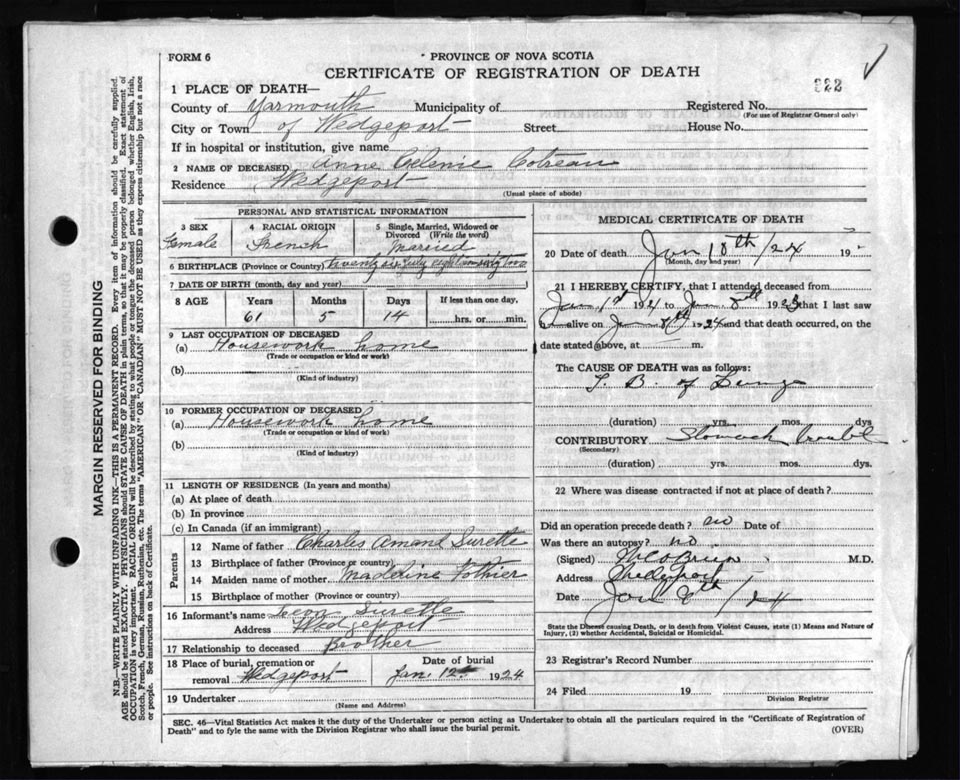 FORM 6
PROVINCE OF NOVA SCOTIA
CERTIFICATE OF REGISTRATION OF DEATH
322
1 PLACE OF DEATH—
County of Yarmouth Municipality of Registered No.
(For use of Registrar General only)
City or Town of Wedgeport Street House No.
If in hospital or institution, give name
2 NAME OF DECEASED Anne Celenie Cotreau
Residence Wedgeport
(Usual place of abode)
PERSONAL AND STATISTICAL INFORMATION
3 SEX Female
4 RACIAL ORIGIN French
5 Single, Married, Widowed or Divorced (Write the word) Married
6 BIRTHPLACE (Province or Country) twenty six July eighteen sixty two
7 DATE OF BIRTH (month, day and year)
8 AGE Years Months Days If less than one day,
61 5 14 hrs. or min.
9 LAST OCCUPATION OF DECEASED
(a) Housework home
(Trade or occupation or kind or work)
(b)
(Kind of industry)
10 FORMER OCCUPATION OF DECEASED
(a) Housework home
(Trade or occupation or kind of work)
(b)
(Kind of industry)
11 LENGTH OF RESIDENCE (In years and months)
(a) At place of death
(b) In province
(c) In Canada (if an immigrant)
Parents
12 Name of father Charles Amand Surette
13 Birthplace of father (Province or country)
14 Maiden name of mother Madeline Pothier
15 Birthplace of mother (Province or country)
16 Informant's name Leon Surette
Address Wedgeport
17 Relationship to deceased Brother
18 Place of burial, cremation or removal Wedgeport
Date of burial Jan. 12th 1924
19 Undertaker
(Name and Address)
MEDICAL CERTIFICATE OF DEATH
20 Date of death Jan 10th /24 19
(Month, day and year)
21 I HEREBY CERTIFY, that I attended deceased from
Jan 1st 1921 to 1923 that I last saw
alive on Jan 1924 and that death occurred, on
date stated above, at m.
The CAUSE OF DEATH was as follows:
T. B. of Lungs
(duration) yrs. mos. dys
CONTRIBUTORY Stomach trouble
(Secondary)
(duration) yrs. mos. dys.
22 Where was disease contracted if not at place of death?
Did an operation precede death? no Date of
Was there an autopsy? no
(Signed) M.D.
Address Wedgeport
Date Jan /24
State the Disease causing Death, or in death from Violent Causes, state (1) Means and Nature of
Injury, (2) whether Accidental, Suicidal or Homicidal.
23 Registrar's Record Number
24 Filed 19
Division Registrar
SEC. 46—Vital Statistics Act makes it the duty of the Undertaker or person acting as Undertaker to obtain all the particulars required in the "Certificate of Registration of
Death" and to fyle the same with the Division Registrar who shall issue the burial permit.
(OVER)
MARGIN RESERVED FOR BINDING
N.B.—WRITE PLAINLY WITH UNFADING INK—THIS IS A PERMANENT RECORD. Every item of information should be carefully supplied.
AGE should be stated EXACTLY. PHYSICIANS should STATE CAUSE OF DEATH in plain terms, so that it may be properly classified. Exact statement of
OCCUPATION is very important. RACIAL ORIGIN will be described by stating to what people or tongue the deceased person belonged whether English, Irish,
Scotch, French, German, Russian, Ruthenian, etc. The terms "AMERICAN" OR "CANADIAN" MUST NOT BE USED as they express citizenship but not a race
or people. See instructions on back of Certificate.